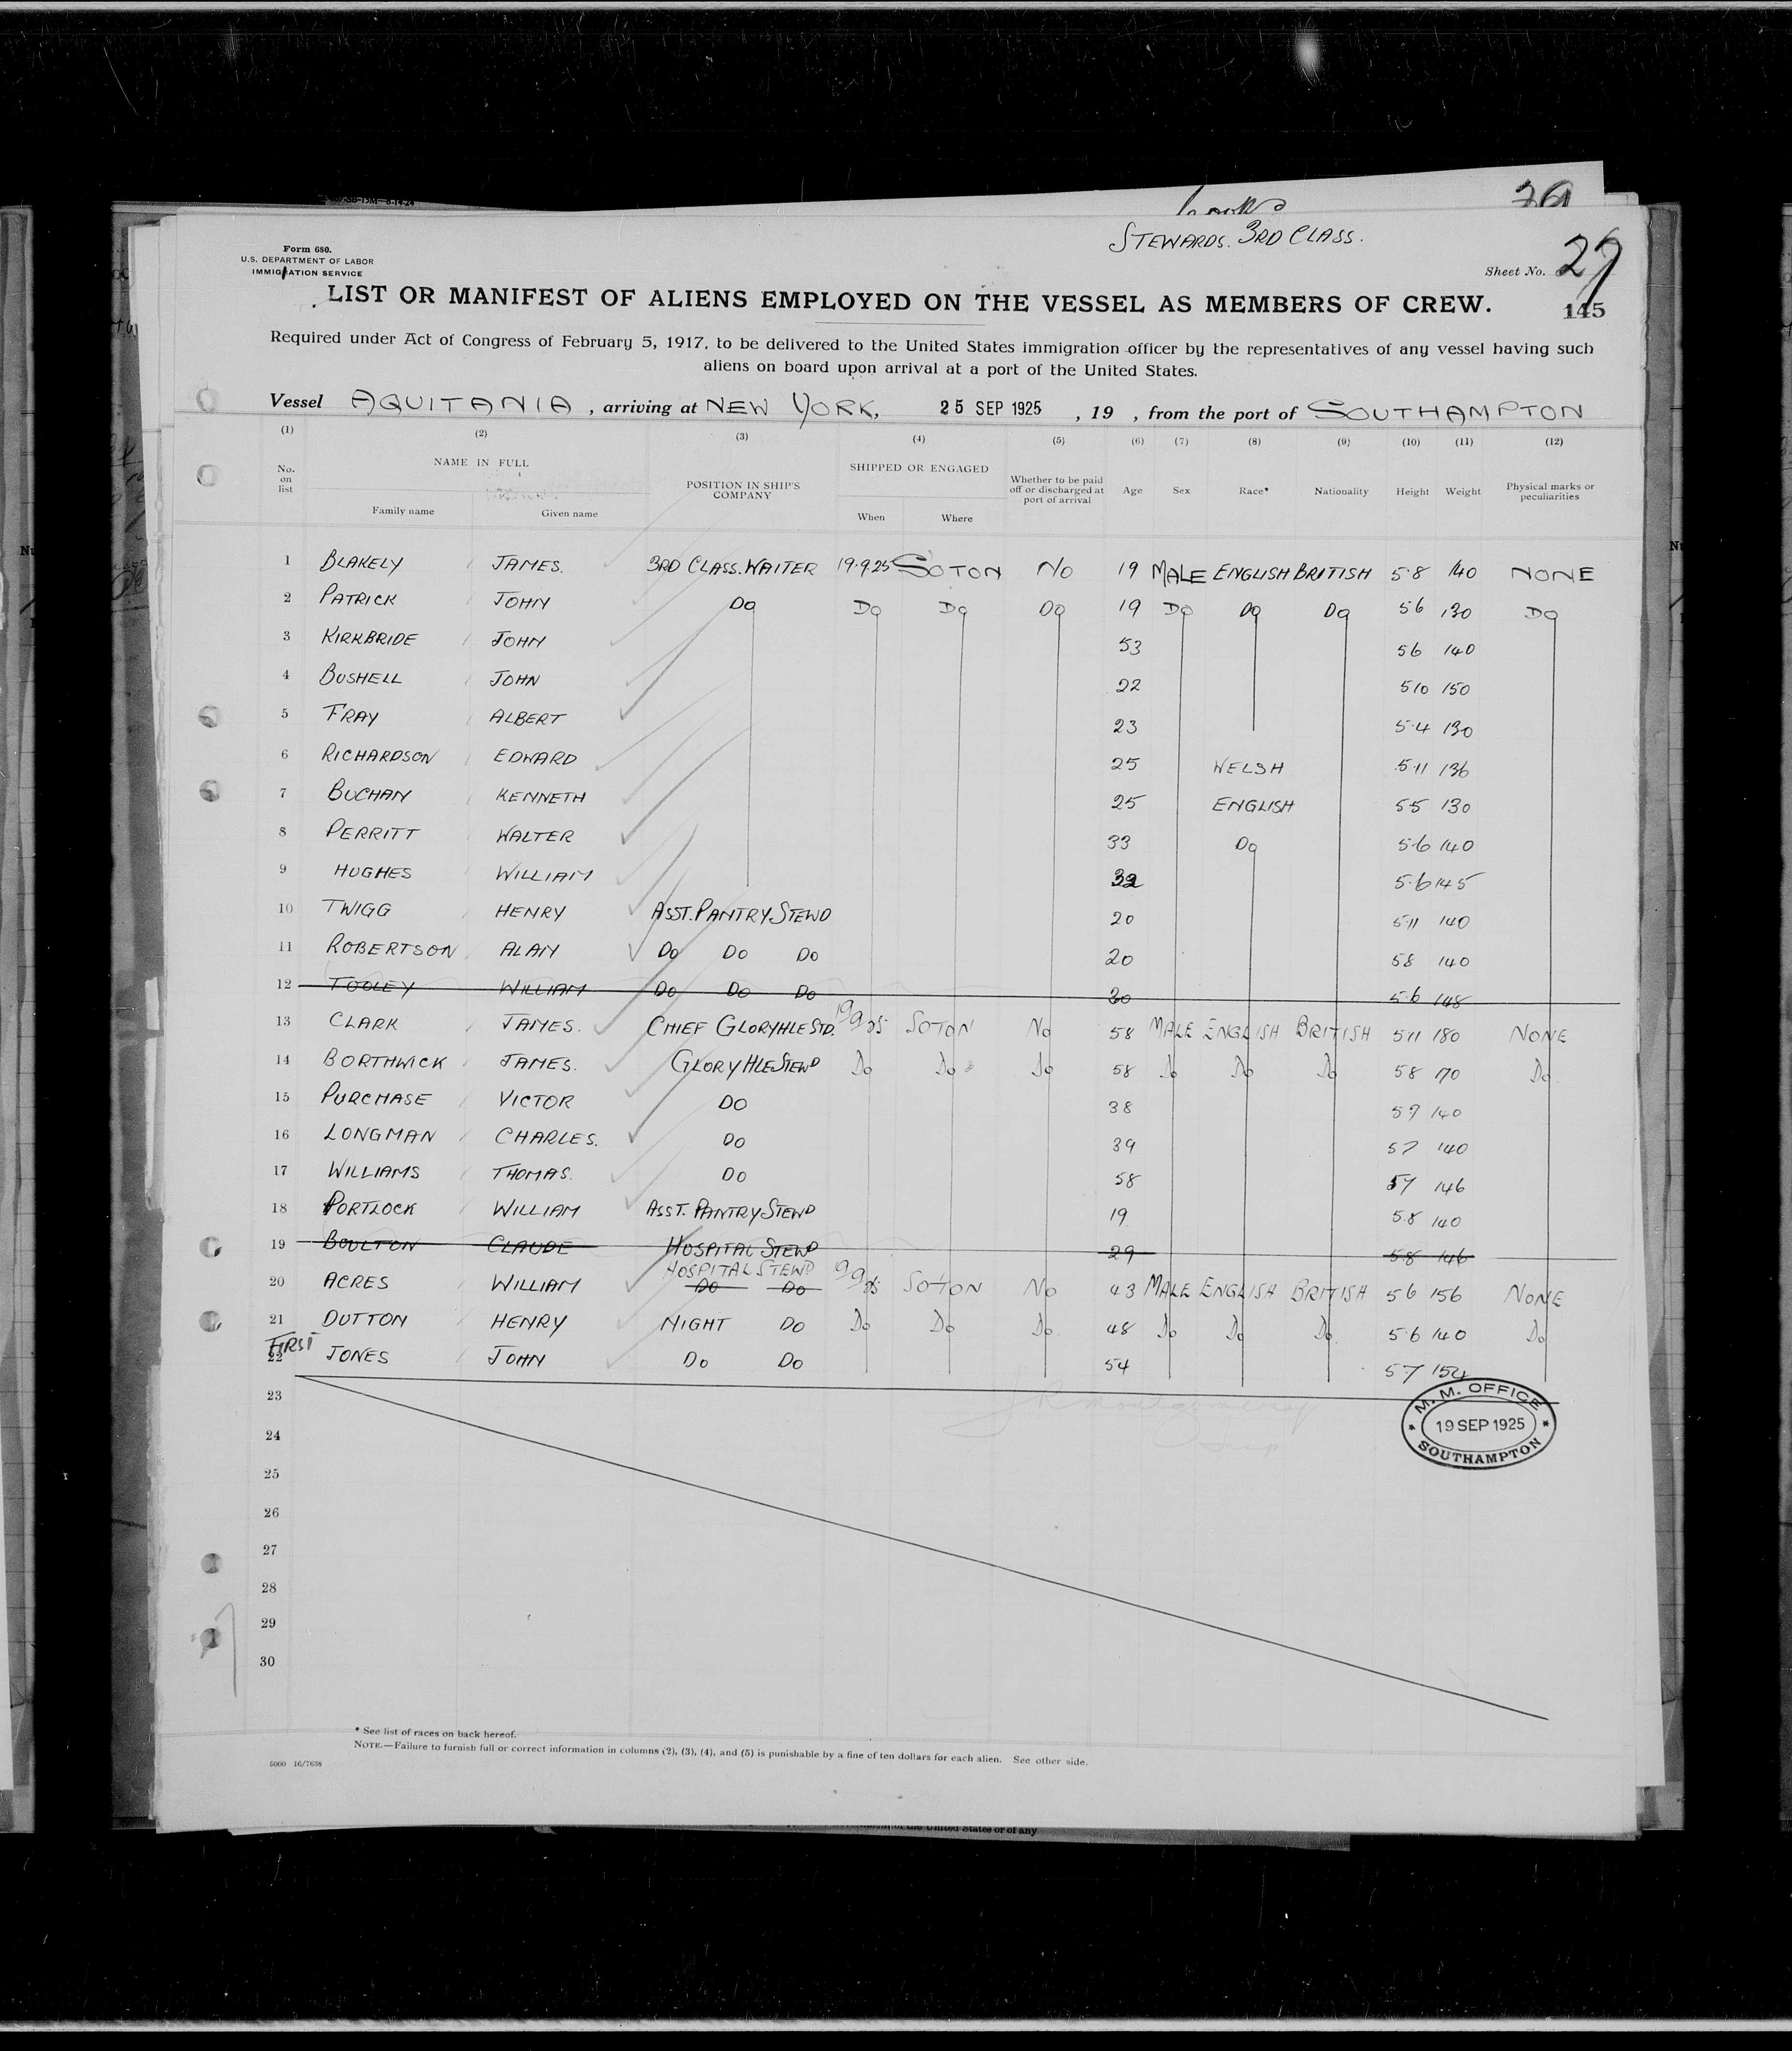 STEWARDS. 3RD CLASS.
Form 680.
U.S. DEPARTMENT OF LABOR
IMMIGRATION SERVICE
Sheet No. 27
LIST OR MANIFEST OF ALIENS EMPLOYED ON THE VESSEL AS MEMBERS OF CREW.
145
Required under Act of Congress of February 5, 1917, to be delivered to the United States immigration officer by the representatives of any vessel having such
aliens on board upon arrival at a port of the United States.
Vessel AQUITANIA, arriving at NEW YORK, 25 SEP 1925, 19 , from the port of SOUTHAMPTON
(1) (2) (3) (4) (5) (6) (7) (8) (9) (10) (11) (12)
No. on list NAME IN FULL Family name Given name POSITION IN SHIP'S COMPANY SHIPPED OR ENGAGED When Where Whether to be paid off or discharged at port of arrival Age Sex Race* Nationality Height Weight Physical marks or peculiarities
1 BLAKELY JAMES. 3RD CLASS.WAITER 19.9.25 SOTON NO 19 MALE ENGLISH BRITISH 5.8 140 NONE
2 PATRICK JOHN DO DO DO DO 19 DO DO DO 56 130 DO
3 KIRKBRIDE JOHN 53 56 140
4 BUSHELL JOHN 22 510 150
5 FRAY ALBERT 23 5.4 130
6 RICHARDSON EDWARD 25 WELSH 5.11 136
7 BUCHAN KENNETH 25 ENGLISH 55 130
8 PERRITT WALTER 33 DO 5.6 140
9 HUGHES WILLIAM 5.6 145
10 TWIGG HENRY ASST. PANTRY STEWD 20 511 140
11 ROBERTSON ALAN DO DO DO 20 58 140
12 TOOLEY WILLIAM DO DO DO 30 5.6 148
13 CLARK JAMES. CHIEF GLORYHLE STD. 19/9/25 SOTON No 58 MALE ENGLISH BRITISH 511 180 NONE
14 BORTHWICK JAMES. GLORY HLE STEWD Do Do Do 58 Do Do Do 58 170 Do
15 PURCHASE VICTOR DO 38 59 140
16 LONGMAN CHARLES. DO 39 57 140
17 WILLIAMS THOMAS. DO 58 57 146
18 PORTLOCK WILLIAM ASST. PANTRY STEWD 19 5.8 140
19 BOULTON CLAUDE HOSPITAL STEWD 29 5.8 146
HOSPITAL STEWD
20 ACRES WILLIAM DO DO 19/9/25 SOTON No 43 MALE ENGLISH BRITISH 56 156 NONE
21 DUTTON HENRY NIGHT DO Do Do Do 48 Do Do Do 56 140 Do
FIRST
22 JONES JOHN DO DO 54 57 154
23
M. M. OFFICE
19 SEP 1925
SOUTHAMPTON
24
25
26
27
28
29
30
* See list of races on back hereof.
NOTE.—Failure to furnish full or correct information in columns (2), (3), (4), and (5) is punishable by a fine of ten dollars for each alien. See other side.
5000 16/7638